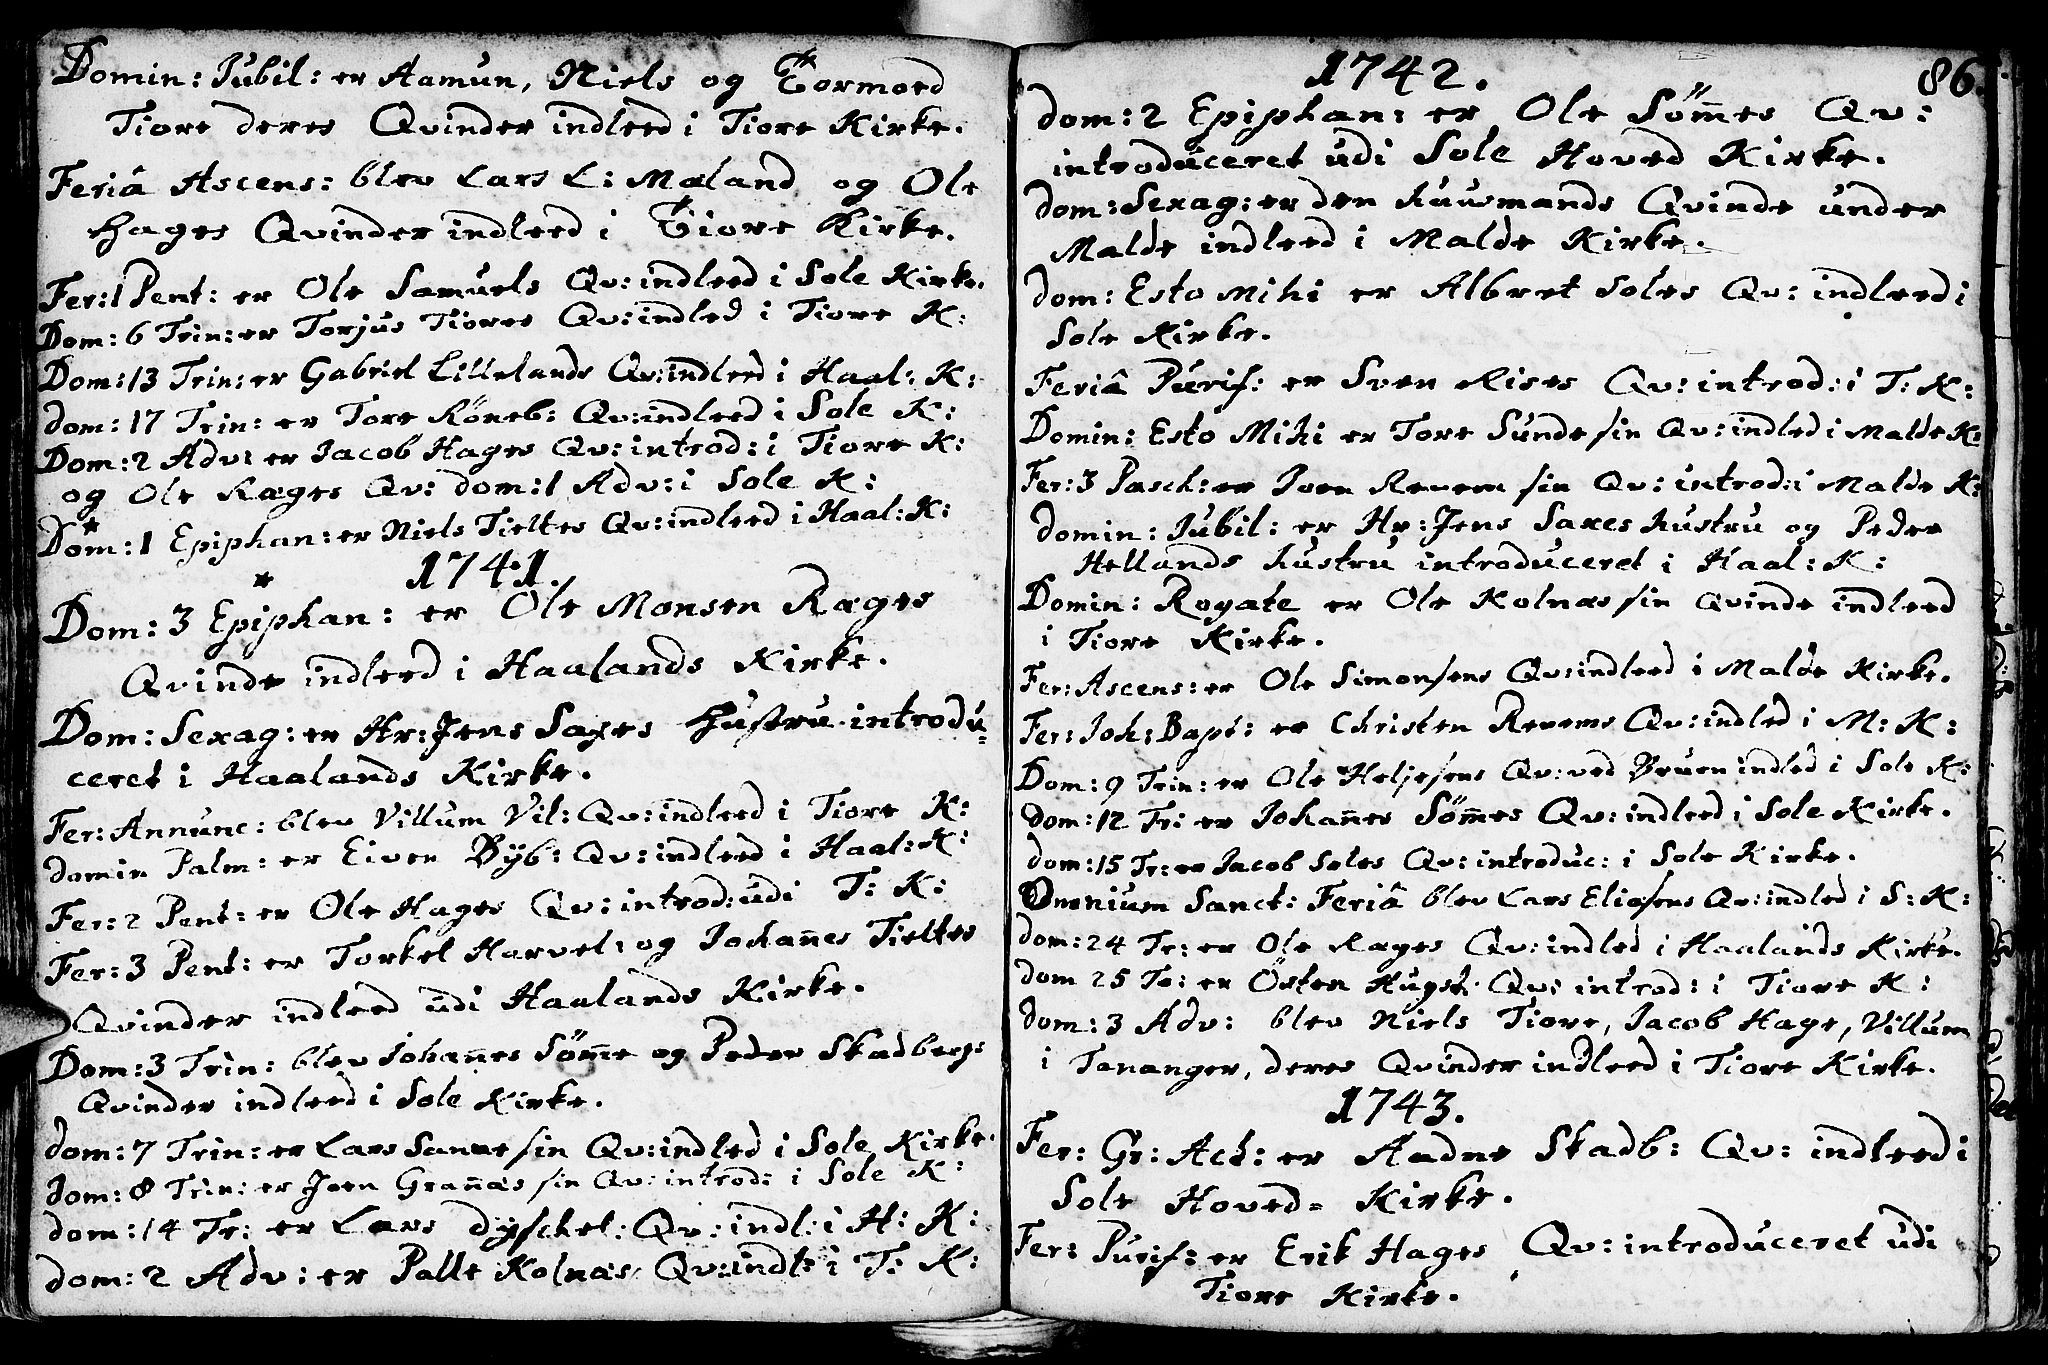 Domin: Jubil: er Aamun, Niels og Tormoed
Tiore deres Qvinder indleed i Tiore Kirke.
Feriâ Ascens: blev Lars L: Mæland og Ole
Hages Qvinder indleed i Tiore Kirke.
Fer: 1 Pent: er Ole Samuels Qv: indleed i Sole Kirke.
Dom: 6 Trin: er Torjus Tiores Qv: indled i Tiore K:
Dom: 13 Trin: er Gabriel Lillelands Qv: indleed i Haal: K:
dom: 17 Trin: er Tore Röneb: Qv: indleed i Sole K:
Dom: 2 Adv: er Jacob Hages Qv: introd: i Tiore K:
og Ole Ræges Qv: dom: 1 Adv: i Sole K:
* Dom: 1 Epiphan: er Niels Tieltes Qv: indleed i Haal: K:
* 1741.
Dom: 3 Epiphan: er Ole Monsen Ræges
Qvinde indleed i Haalands Kirke.
Dom: Sexag: er Hr: Jens Saxes Hustru introdu=
ceret i Haalands Kirke.
Fer: Annunc: blev Villum Vil: Qv: indleed i Tiore K:
domin Palm: er Eiven Byb: Qv: indleed i Haal: K:
Fer: 2 Pent: er Ole Hages Qv: introd: udi T: K:
Fer: 3 Pent: er Torkel Harvel: og Johan̄es Tieltes
Qvinder indleed udi Haalands Kirke.
Dom: 3 Trin: blev Johan̄es Söm̄e og Peder Skadbergs
Qvinder indleed i Sole Kirke.
dom: 7 Trin: er Lars Sanne sin Qv: indled i Sole Kirke.
dom: 8 Trin: er Joen Gran̄æs sin Qv: introd: i Sole K:
dom: 14 Tr: er Lars Dyschel: Qv: indl: i H: K:
dom: 2 Adv: er Palle Kolnæs Qv: indl: i T: K:
86.
1742.
dom: 2 Epiphan: er Ole Söm̄es Qv:
introduceret udi Sole Hoved Kirke.
dom: Sexag: er den huusmands Qvinde under
Malde indleed i Malde Kirke.
dom: Esto Mihi er Albret Soles Qv: indleed i
Sole Kirke.
Feriâ Purif: er Sven Rises Qv: introd: i T: K:
Domin: Esto Mihi er Tore Sunde sin Qv: indled i Malde K:
Fer: 3 Pasch: er Joen Revem sin Qv: introd: i Malde K:
domin: Jubil: er Hr: Jens Saxes hustru og Peder
Hellands hustru introduceret i Haal: K:
Domin: Rogate er Ole Kolnæs sin Qvinde indleed
i Tiore Kirke.
Fer: Ascens: er Ole Simonsens Qv: indleed i Malde Kirke.
Fer: Joh: Bapt: er Christen Revems Qv: indled i M: K:
Dom: 9 Trin: er Ole Heljesens Qv: ved Bruen indled i Sole K:
dom: 12 Tr: er Johan̄es Söm̄es Qv: indleed i Sole Kirke.
dom: 15 Tr: er Jacob Soles Qv: introduc: i Sole Kirke.
Omnium Sanct: Feriâ blev Lars Eliasens Qv: indled i S: K:
dom: 24 Tr: er Ole Ræges Qv: indled i Haalands Kirke.
dom 25 Tr: er Östen Hugst: Qv: introd: i Tiore K:
dom: 3 Adv: blev Niels Tiore, Jacob Hage, Villum
i Tananger, deres Qvinder indleed i Tiore Kirke.
1743.
Fer: Gr: Act: er Aadne Skadb: Qv: indleed i
Sole Hoved= Kirke.
Fer: Purif: er Erik Hages Qv: introduceret udi
Tiore Kirke.